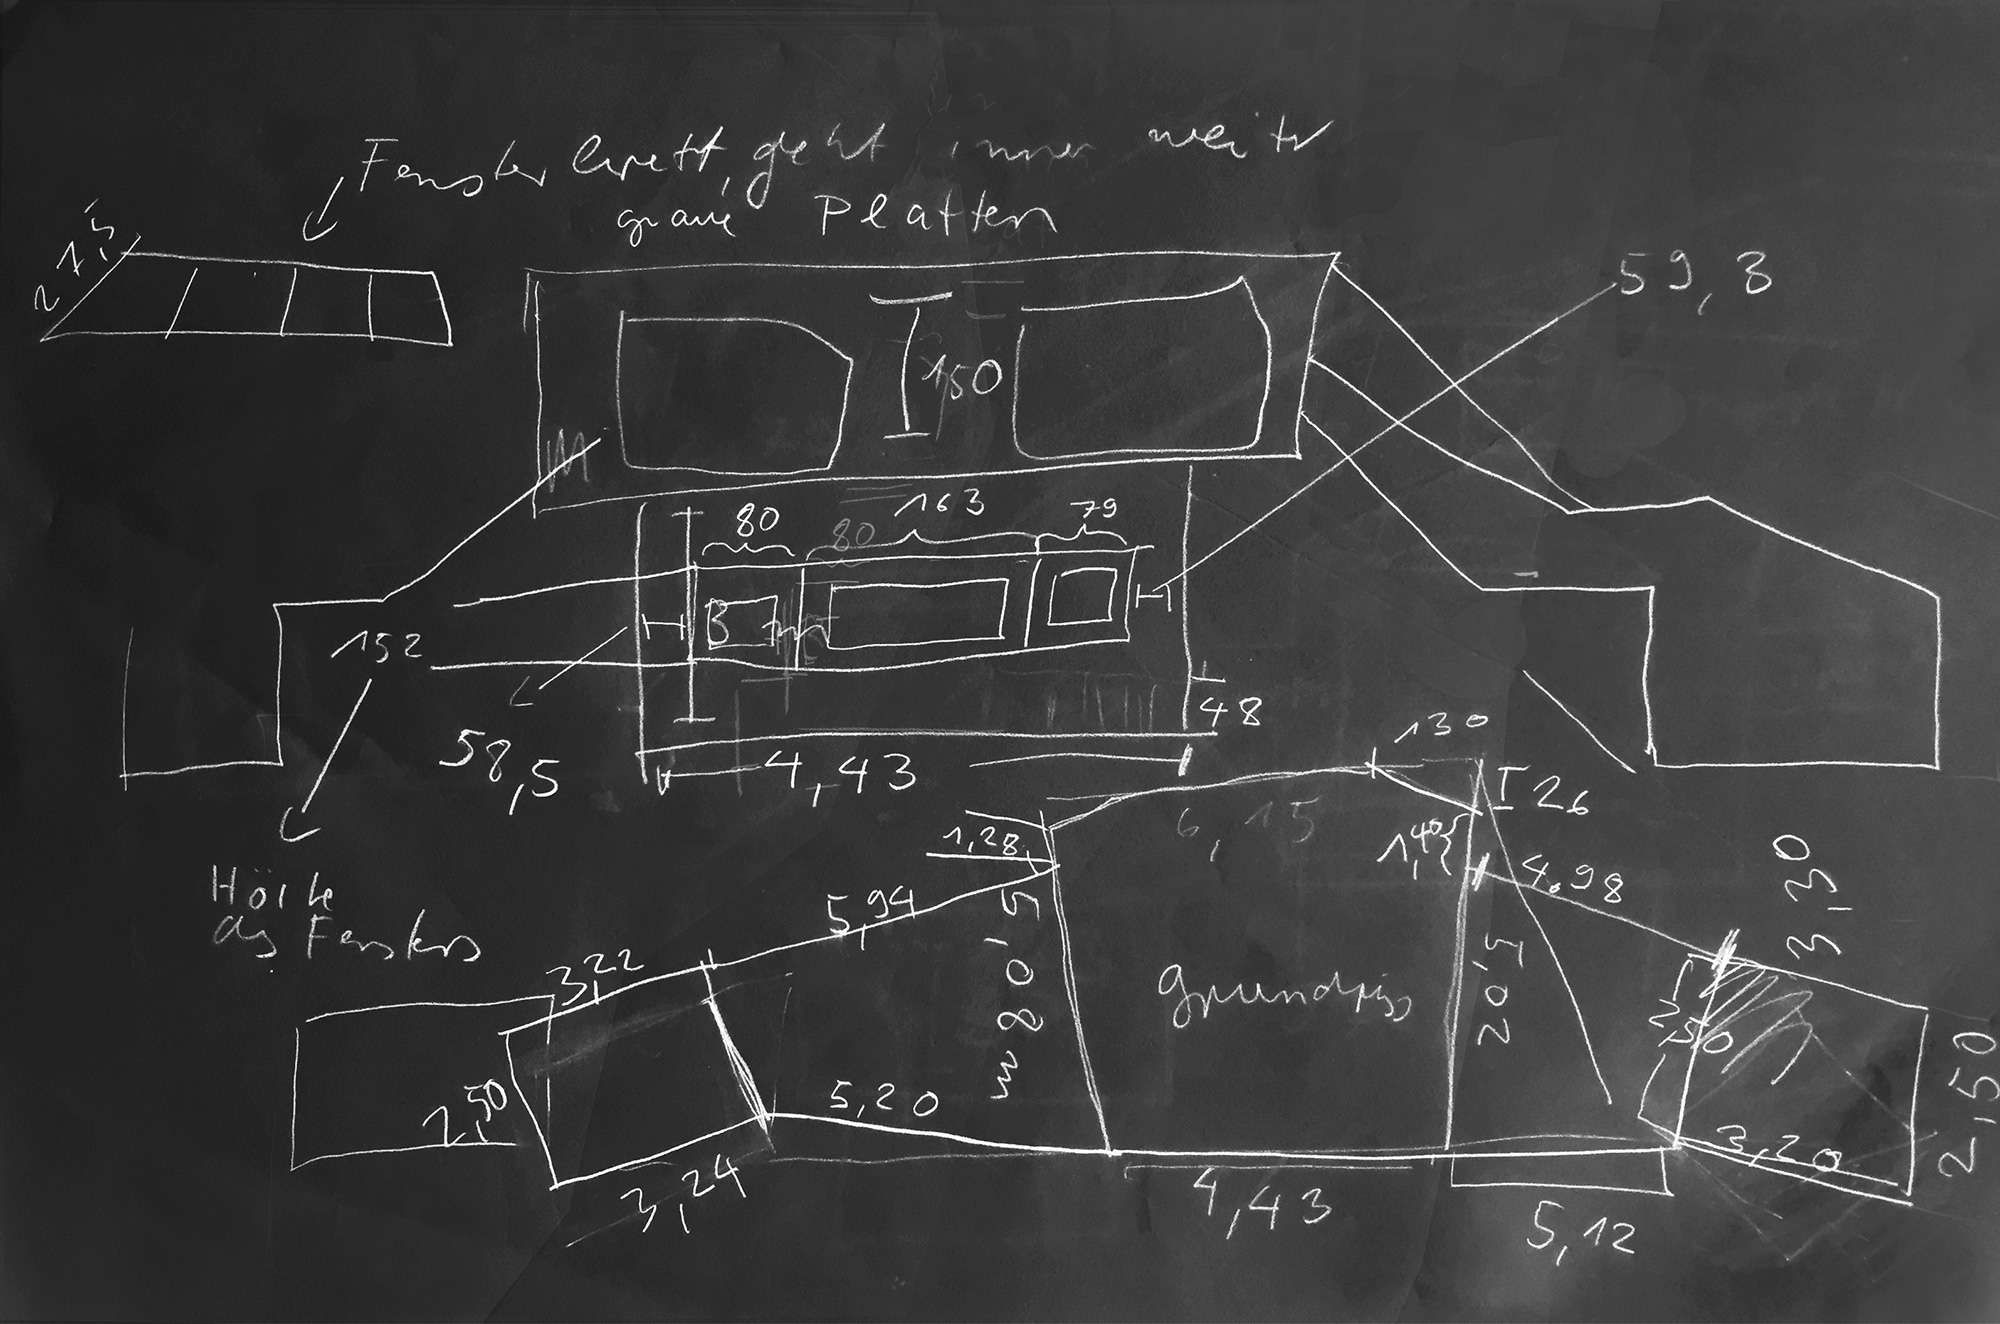 Fensterbrett, geht immer weiter
graue Platten
27,5
59,3
150
163
80
79
80
152
48
58,5
4,43
130
26
6,15
1,28
1,40
4,98
3,30
Höhe
des Fensters
5,94
3,22
Grundriss
2,50
2,50
2,50
5,20
3,20
3,24
4,43
5,12